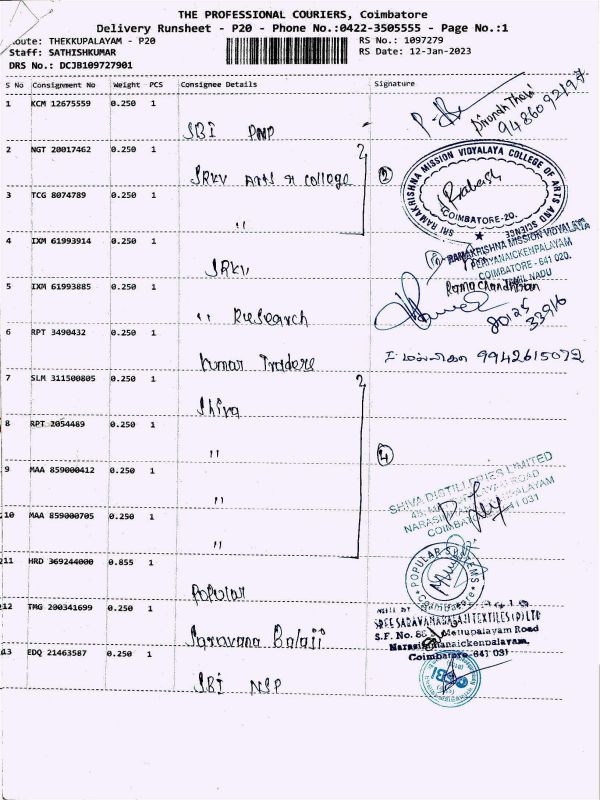 THE PROFESSIONAL COURIERS, Coimbatore
Delivery Runsheet - P20 - Phone No.:0422-3505555 - Page No.:1
Route: THEKKUPALAYAM - P20
RS No.: 1097279
Staff: SATHISHKUMAR
RS Date: 12-Jan-2023
DRS No.: DCJB109727901
S No Consignment No Weight PCS Consignee Details Signature
1 KCM 12675559 0.250 1
SBI PNP
9486092197
2 NGT 20017462 0.250 1
SRKV Arts & College
2
SRI RAMAKRISHNA MISSION VIDYALAYA COLLEGE OF ARTS AND SCIENCE
COIMBATORE-20.
3 TCG 8074789 0.250 1
"
4 IXM 61993914 0.250 1
SRKV
RAMAKRISHNA MISSION VIDYALAYA
PERIYANAICKENPALAYAM
COIMBATORE - 641 020.
TAMIL NADU
5 IXM 61993885 0.250 1
" Research
Ramachandran
80125
33916
6 RPT 3490432 0.250 1
Kumar Traders
9942615072
7 SLM 311500805 0.250 1
Shiva
8 RPT 2054489 0.250 1
"
4
9 MAA 859000412 0.250 1
"
SHIVA DISTILLERIES LIMITED
10 MAA 859000705 0.250 1
"
11 HRD 369244000 0.855 1
Popular
POPULAR SYSTEMS
Coimbatore
12 TMG 200341699 0.250 1
Saravana Balaji
SREE SARAVANA BALAJI TEXTILES (P) LTD
Mettupalayam Road
Narasimhanaickenpalayam,
Coimbatore-641 031
13 EDQ 21463587 0.250 1
SBI NSP